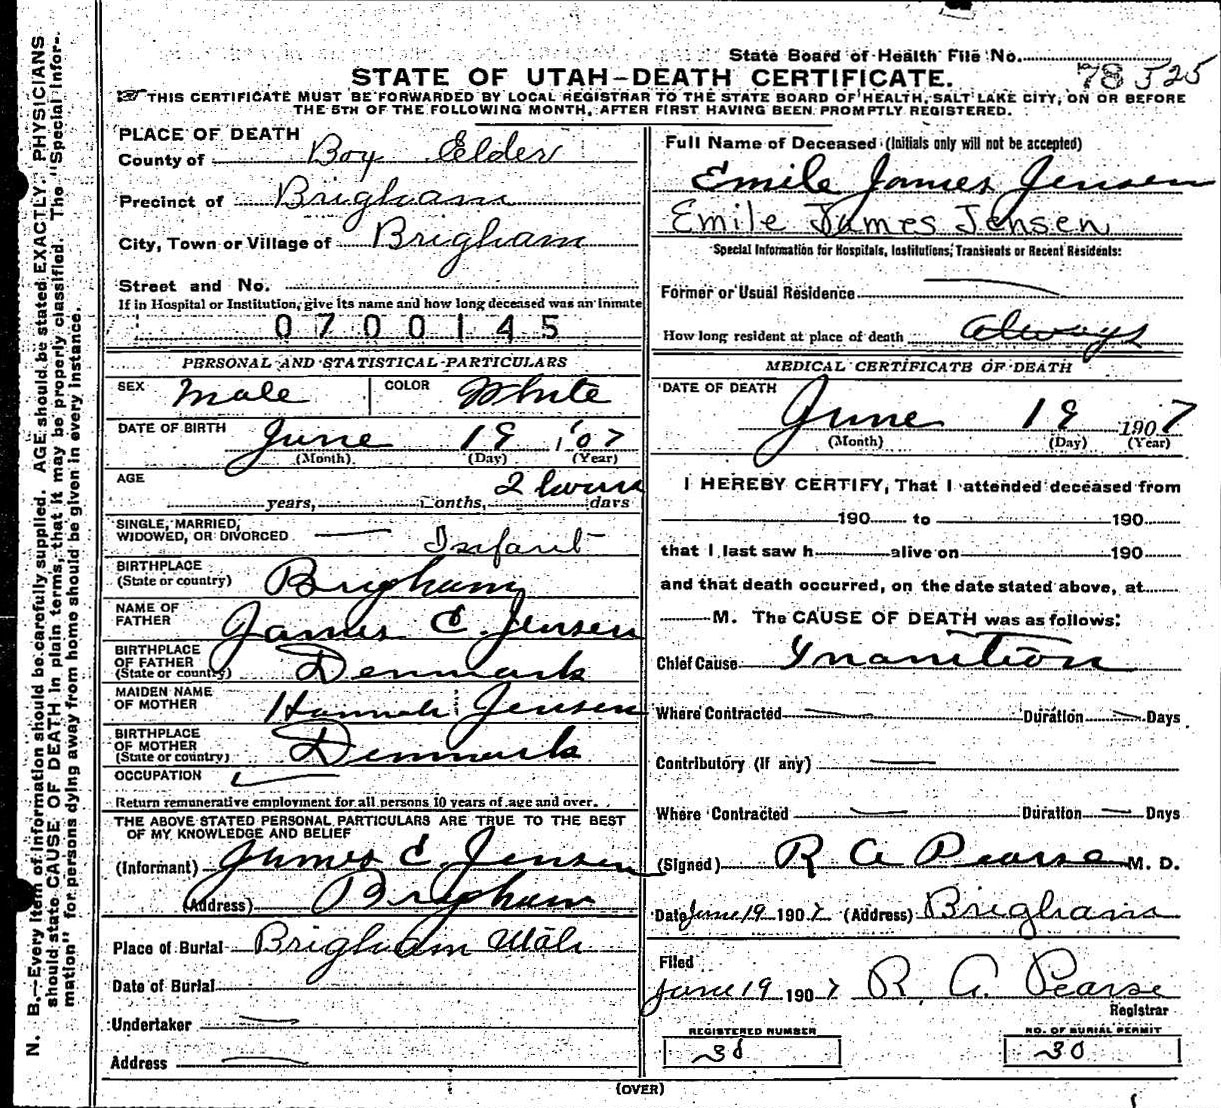 State Board of Health File No. 78525
STATE OF UTAH—DEATH CERTIFICATE.
THIS CERTIFICATE MUST BE FORWARDED BY LOCAL REGISTRAR TO THE STATE BOARD OF HEALTH, SALT LAKE CITY, ON OR BEFORE
THE 5TH OF THE FOLLOWING MONTH, AFTER FIRST HAVING BEEN PROMPTLY REGISTERED.
N. B.—Every item of information should be carefully supplied. AGE should be stated EXACTLY. PHYSICIANS
should state CAUSE OF DEATH in plain terms, that it may be properly classified. The "Special Infor-
mation" for persons dying away from home should be given in every instance.
PLACE OF DEATH
County of Box Elder
Precinct of Brigham
City, Town or Village of Brigham
Street and No.
If in Hospital or Institution, give its name and how long deceased was an inmate
0700145
PERSONAL AND STATISTICAL PARTICULARS
SEX Male COLOR White
DATE OF BIRTH June 19 '07
(Month) (Day) (Year)
AGE 2 hours
years, months, days
SINGLE, MARRIED,
WIDOWED, OR DIVORCED Infant
BIRTHPLACE
(State or country) Brigham
NAME OF
FATHER James C. Jensen
BIRTHPLACE
OF FATHER
(State or country) Denmark
MAIDEN NAME
OF MOTHER Hannah Jensen
BIRTHPLACE
OF MOTHER
(State or country) Denmark
OCCUPATION
Return remunerative employment for all persons 10 years of age and over.
THE ABOVE STATED PERSONAL PARTICULARS ARE TRUE TO THE BEST
OF MY KNOWLEDGE AND BELIEF
(Informant) James C. Jensen
(Address) Brigham
Place of Burial Brigham Utah
Date of Burial
Undertaker
Address
Full Name of Deceased (Initials only will not be accepted)
Emile James Jensen
Emile James Jensen
Special Information for Hospitals, Institutions, Transients or Recent Residents:
Former or Usual Residence
How long resident at place of death always
MEDICAL CERTIFICATE OF DEATH
DATE OF DEATH
June 19 1907
(Month) (Day) (Year)
I HEREBY CERTIFY, That I attended deceased from
190 to 190
that I last saw h alive on 190
and that death occurred, on the date stated above, at
M. The CAUSE OF DEATH was as follows:
Chief Cause Inanition
Where Contracted Duration Days
Contributory (If any)
Where Contracted Duration Days
(Signed) R A Pearse M. D.
Date June 19 1907 (Address) Brigham
Filed
June 19 1907 R. A. Pearse
Registrar
REGISTERED NUMBER NO. OF BURIAL PERMIT
30 30
(OVER)